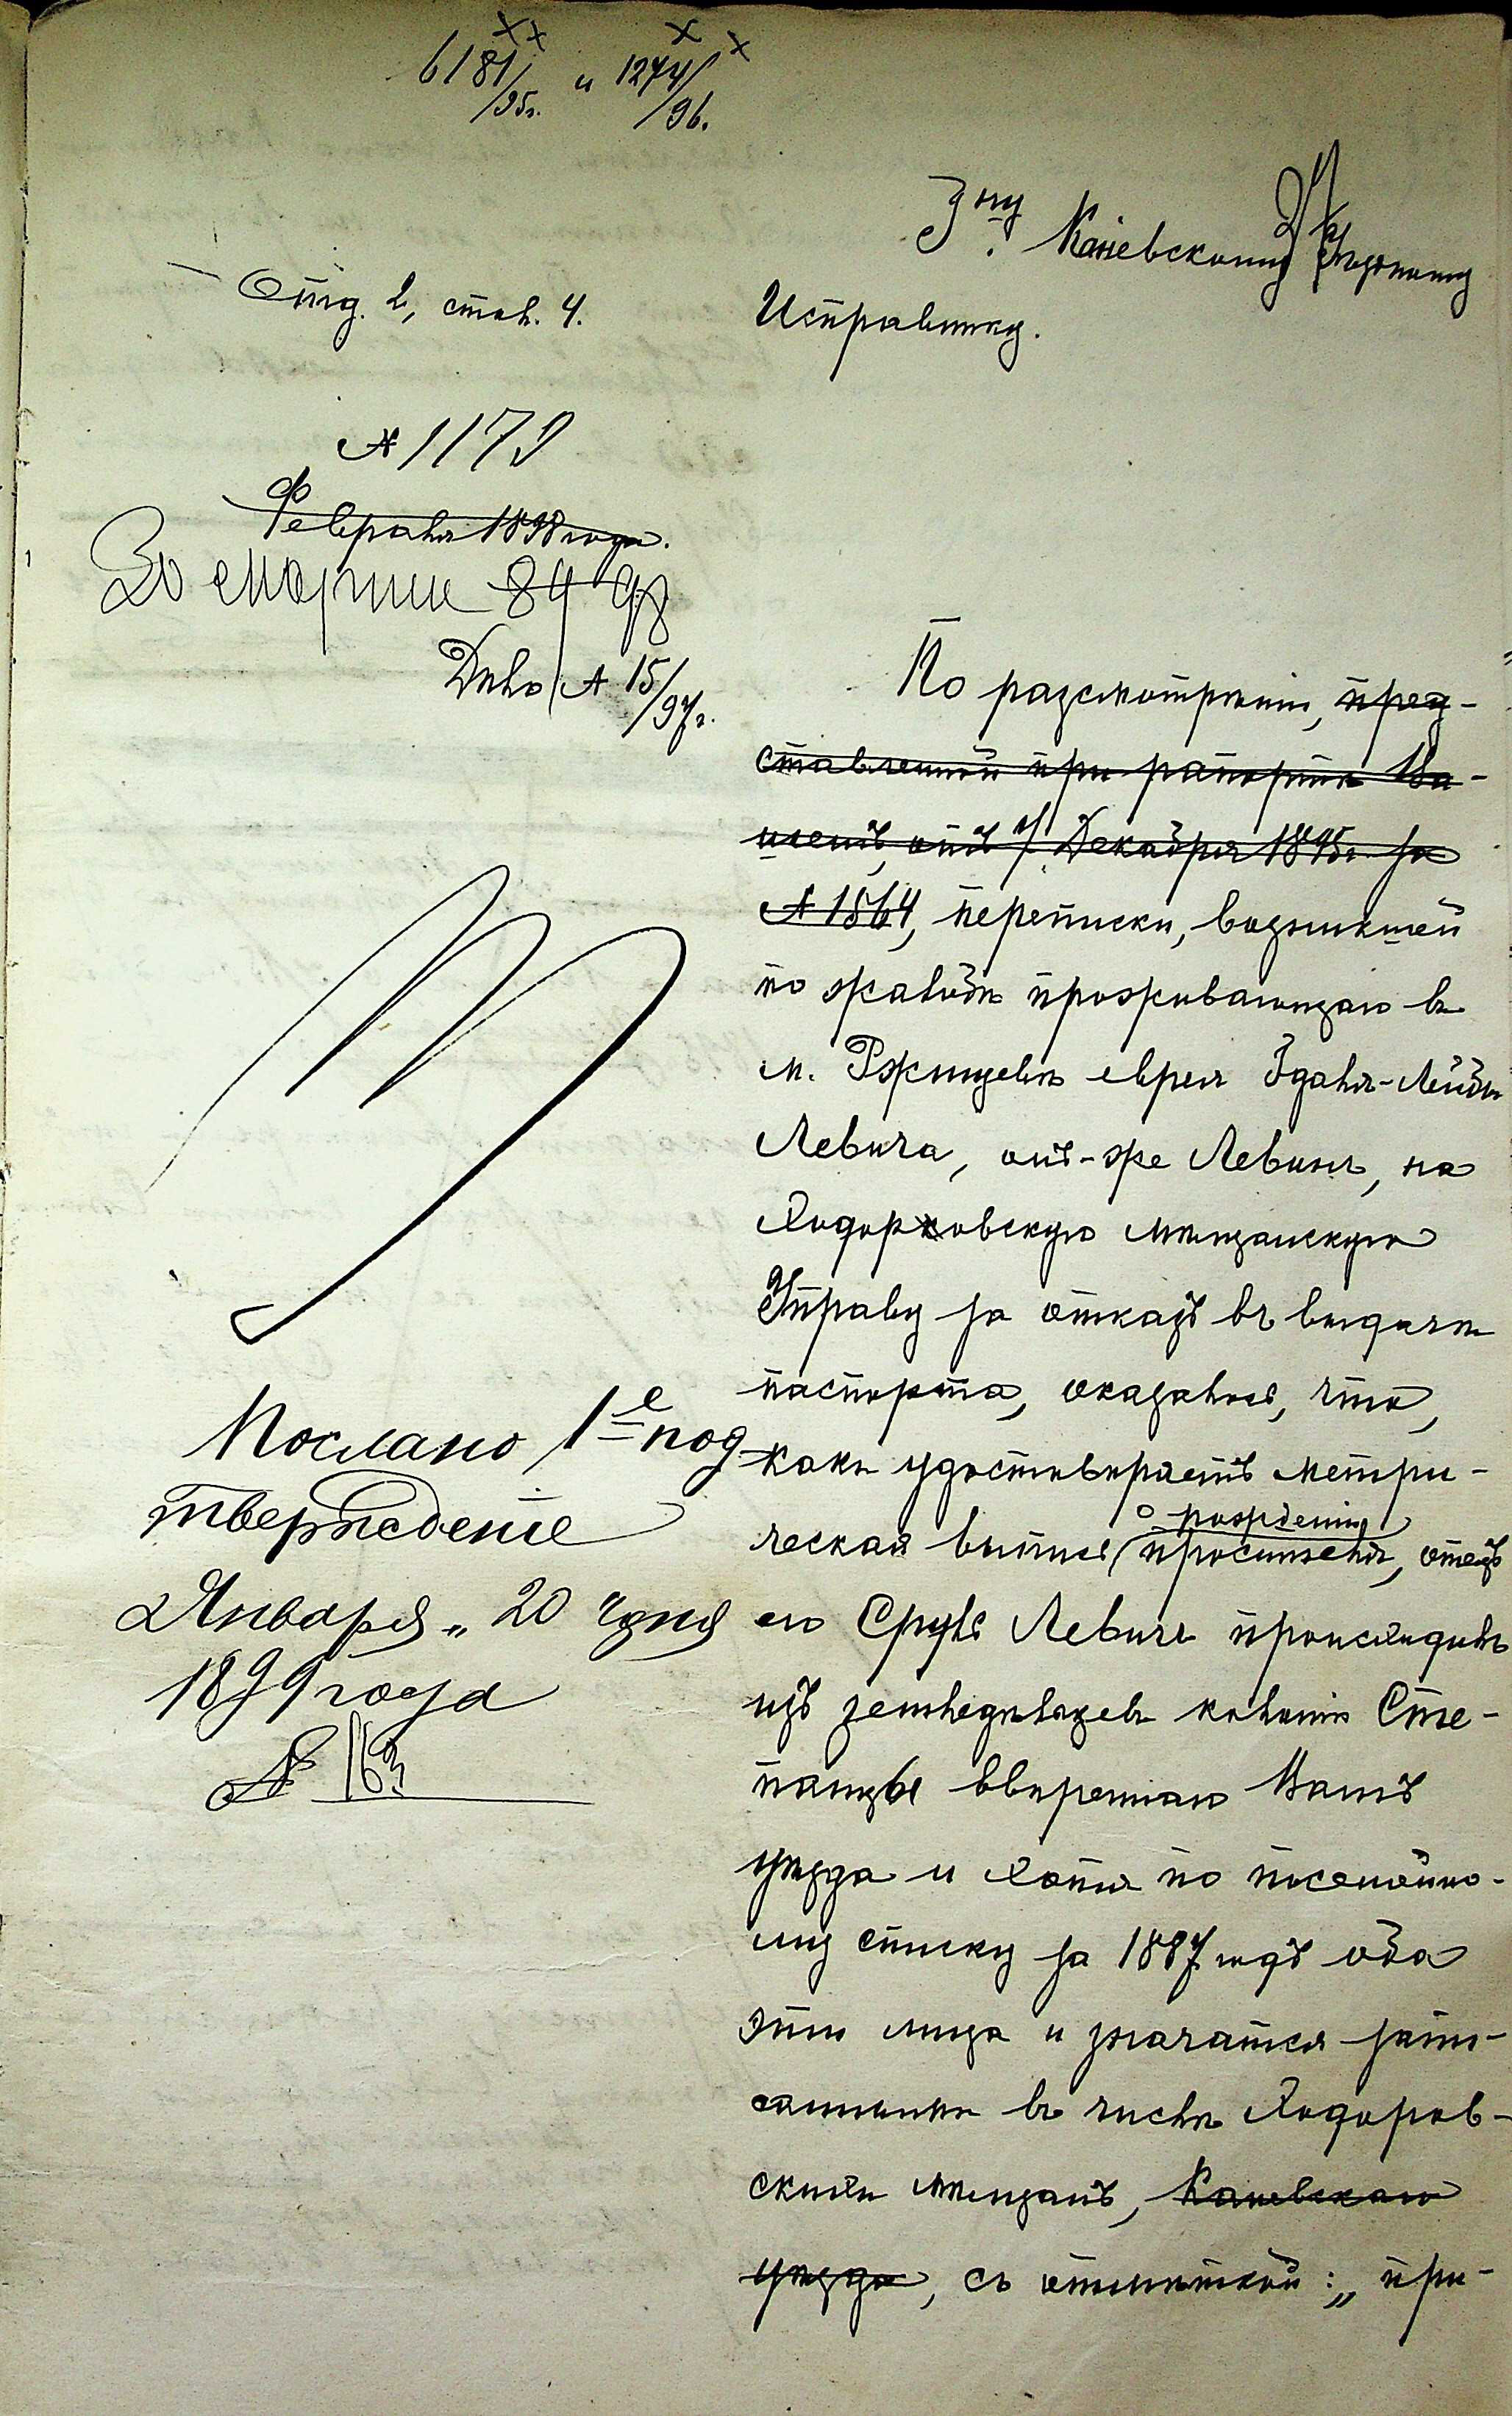 6181/95г. и 1274/96.
Гну Каневскому Уѣздному
Исправнику.
Отд. 2, стол. 4.
№ 1179
Февраля 1898 года.
марта 98
Дѣло № 15/97г.
По разсмотрѣніи, пред-
ставленной при рапортѣ Ва-
шемъ, отъ 7 Декабря 1895г. за
№ 1864, переписки, возникшей
по жалобѣ проживающаго въ
м. Ржищевѣ еврея Юделя-Лейбы
Левича, онъ-же Левинъ, на
Ходоровскую мѣщанскую
Управу за отказъ въ выдачѣ
паспорта, оказалось, что,
какъ удостовѣряетъ метри-
ческая выпись о рожденіи просителя, отецъ
его Сруль Левичъ происходитъ
изъ земледѣльцевъ колоніи Сте-
панцы ввѣреннаго Вамъ
уѣзда и хотя по посемейно-
му списку за 1887 годъ оба
эти лица и значатся запи-
санными въ числѣ Ходоров-
скихъ мѣщанъ, Каневскаго
уѣзда, съ отмѣткой: „при-
Послано 1е под
твержденіе
Января „ 20 дня
1899 года
№